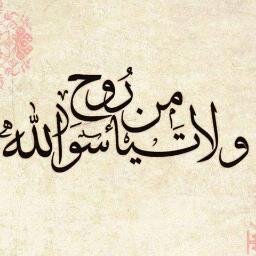 ولا تيأسوا من رُوح الله